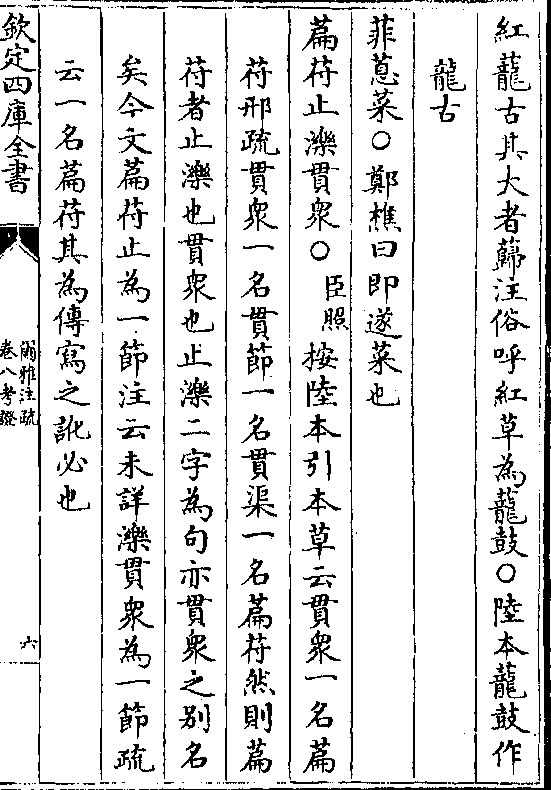 紅蘢古其大者蘬注俗呼紅草為蘢鼓○陸本蘢鼓作
蘢古
菲蒠菜○鄭樵曰即遂菜也
萹苻止濼貫衆○臣照按陸本引本草云貫衆一名萹
苻邢疏貫衆一名貫節一名貫渠一名萹苻然則萹
苻者止濼也貫衆也止濼二字為句亦貫衆之别名
矣今文萹苻止為一節注云未詳濼貫衆為一節疏
云一名萹苻其為傳寫之訛必也
欽定四庫全書
爾雅注疏
卷八考證
六